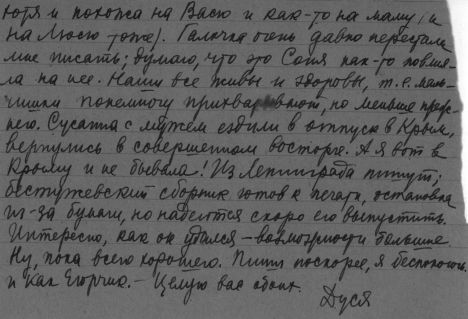 хотя и похожа на Васю и как-то на маму (и
на Люсю тоже). Галочка очень давно перестала
мне писать; думаю, что это Соня как-то повлия-
ла на нее. Наши все живы и здоровы, т.е. маль-
чишки понемногу прихварывают, но меньше преж-
него. Сусанна с мужем ездили в отпуск в Крым,
вернулись в совершенном восторге. А я вот в
Крыму и не бывала! Из Ленинграда пишут:
бестужевский сборник готов к печати, остановка
из-за бумаги, но надеются скоро его выпустить.
Интересно, как он удался – возможности большие.
Ну, пока всего хорошего. Пиши поскорее, я беспокоюсь
и как Егорушка. – Целую вас обоих.
Дуся